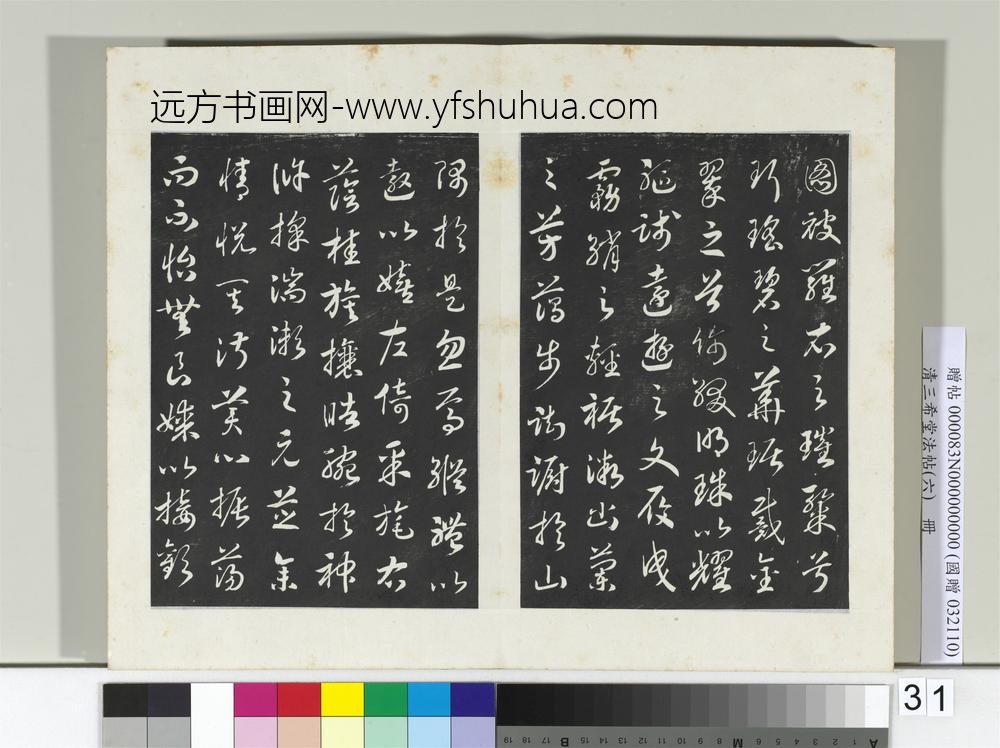 远方书画网-www.yfshuhua.com
圖被羅衣之璀粲兮
珥瑤碧之華琚戴金
翠之首飾綴明珠以耀
軀踐遠遊之文履曳
霧綃之輕裾微幽蘭
之芳藹步踟躕於山
隅於是忽焉縱體以
遨以嬉左倚采旄右
蔭桂旗攘皓腕於神
滸採湍瀨之玄芝余
情悅其淑美心振蕩
而不怡無良媒以接歡
贈帖 000083N000000000 (國贈 032110)
清三希堂法帖(六) 冊
31